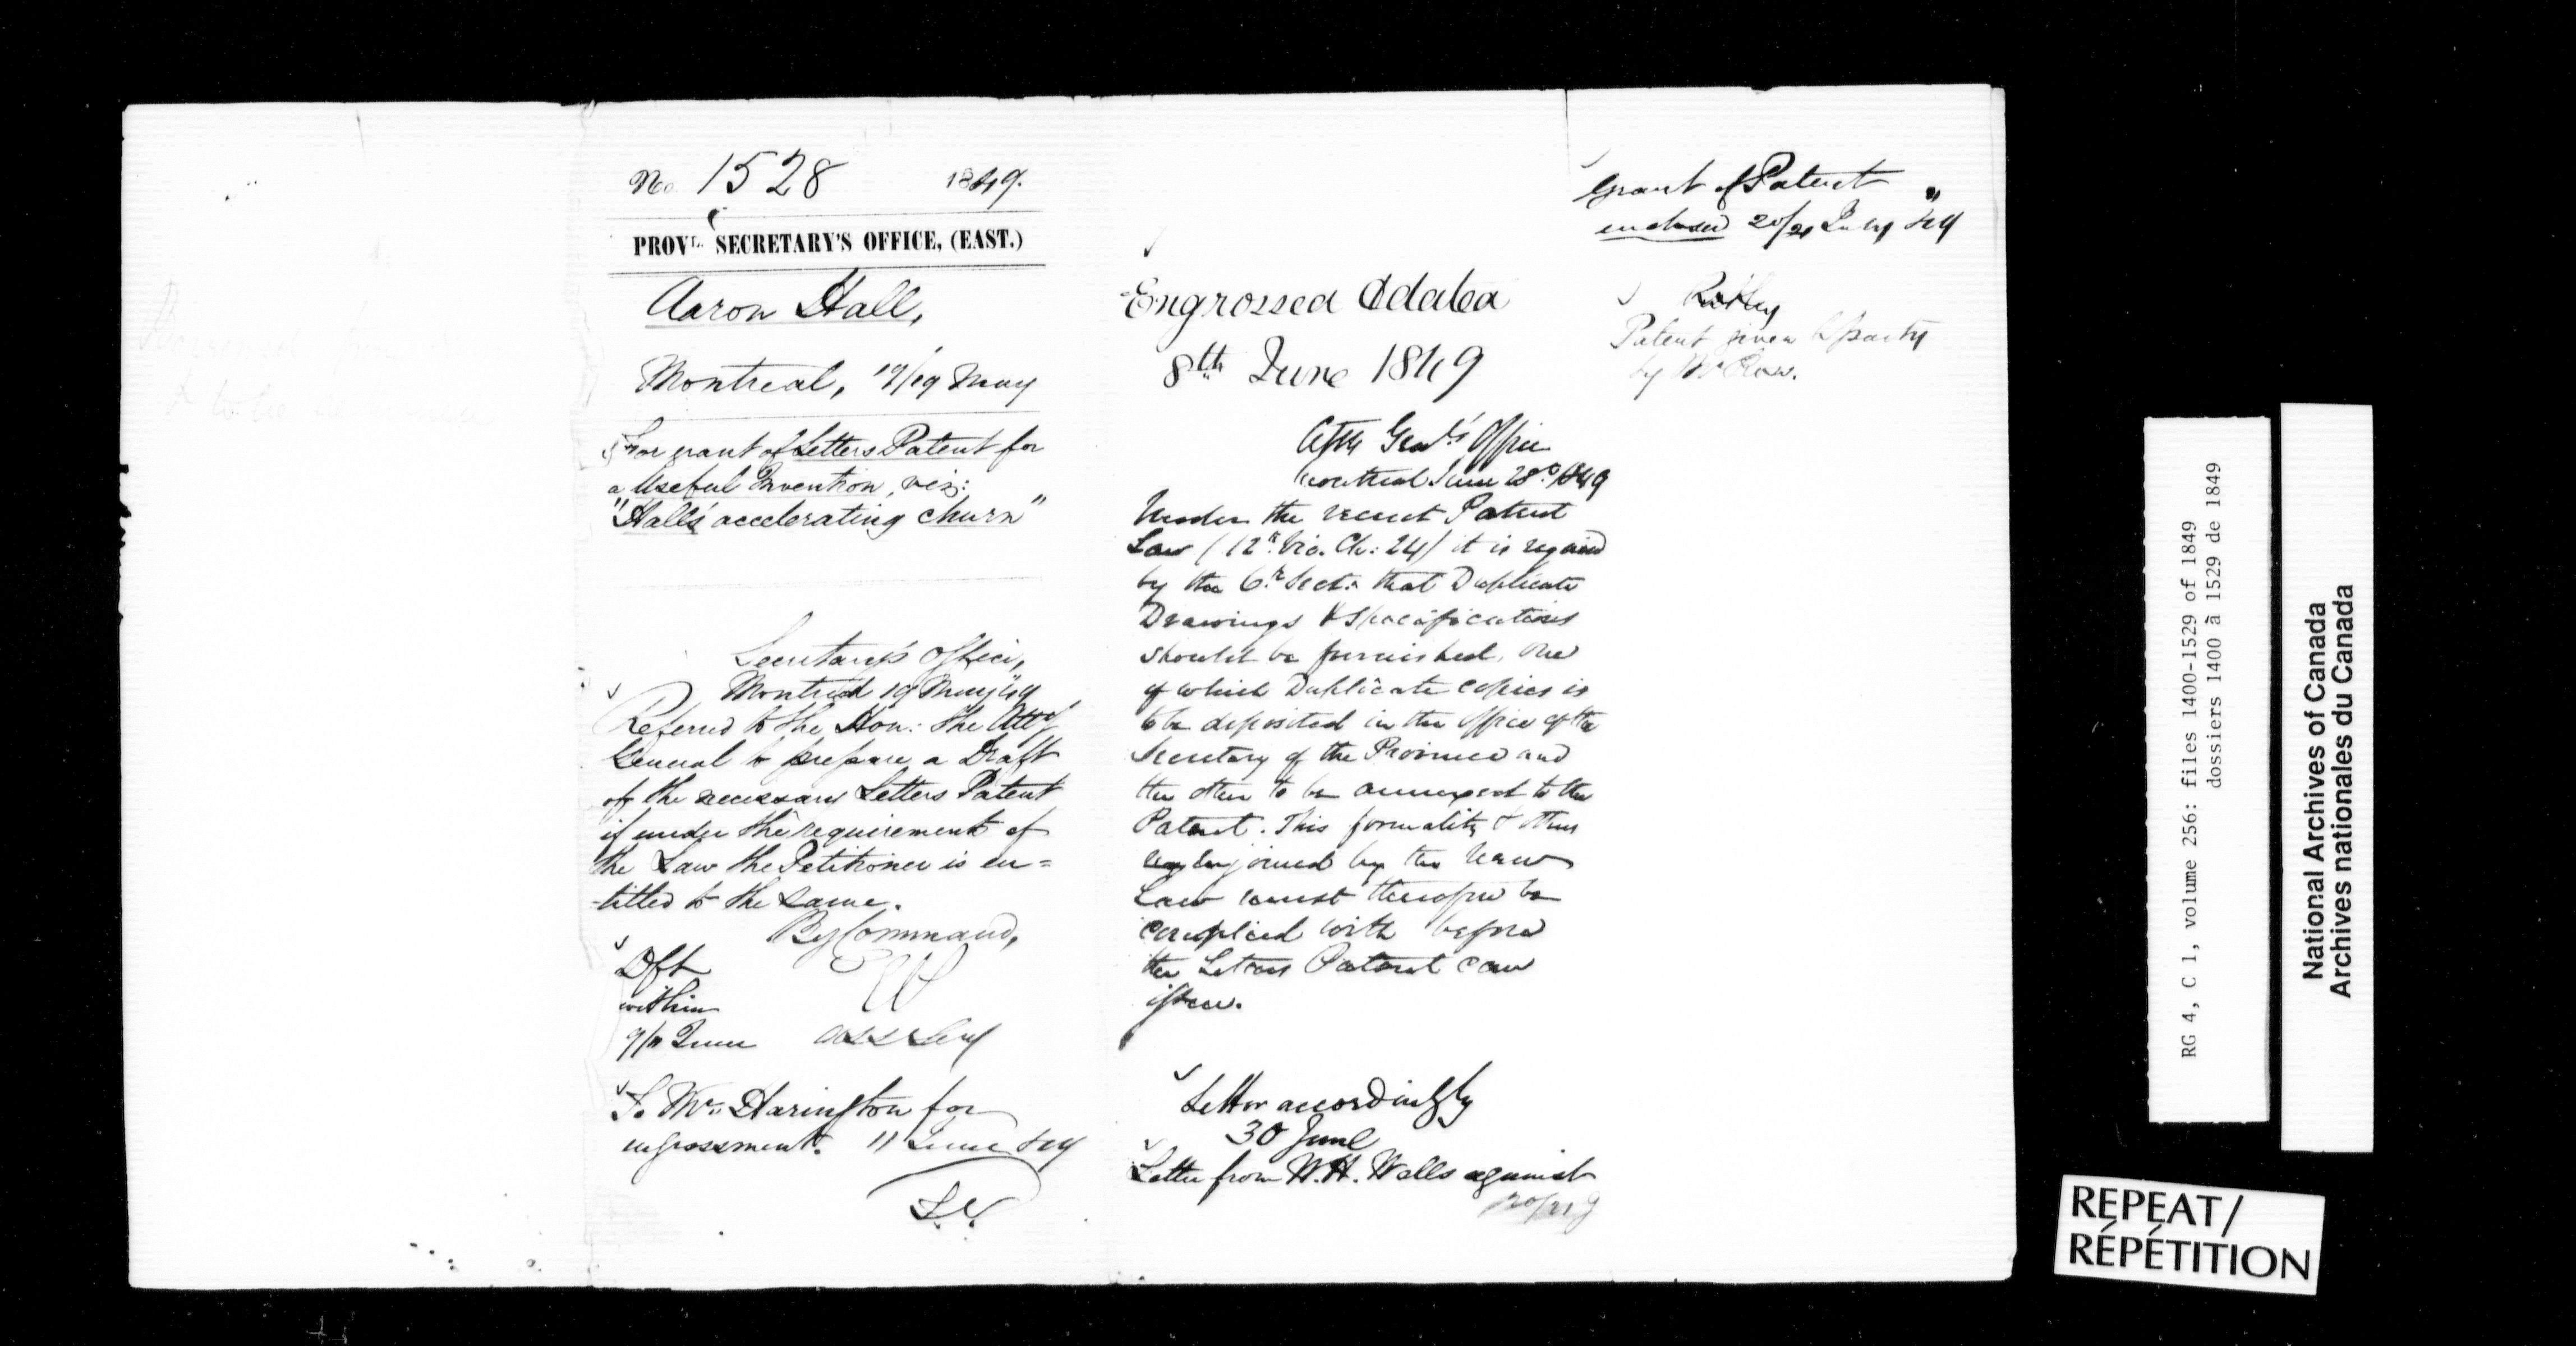 No. 1528 1849.
PROVL. SECRETARY'S OFFICE, (EAST.)
Aaron Hall,
Montreal, 19 May
For grant of Letters Patent for
a Useful Invention, viz:
"Hall's accelerating churn"
Secretary's Office,
Montreal 19 May 49
Referred to the Hon: the Atty
General to prepare a Draft
of the necessary Letters Patent
if under the requirements of
the Law the Petitioner is en=
-titled to the same.
By Command,
Dft
within
9/11 June Asst Secy
To Mr. Harington for
engrossment. 11 June 49
Engrossed & dated
8th June 1849
Atty Genl's Office
Montreal June 28th 1849
Under the recent Patent
Law (12th Vic. Ch: 24) it is required
by the 6th Sect: that Duplicate
Drawings & Specifications
should be furnished, one
of which Duplicate copies is
to be deposited in the office of the
Secretary of the Province and
the other to be annexed to the
Patent. This formality & others
enjoined by the new
Law must therefore be
complied with before
the Letters Patent can
issue.
Letter accordingly
30 June
Letter from W. H. Walls against
Grant of Patent
enclosed 20/21 July 49
Patent given to party
by Mr
RG 4, C 1, volume 256: files 1400-1529 of 1849
dossiers 1400 à 1529 de 1849
National Archives of Canada
Archives nationales du Canada
REPEAT/
RÉPÉTITION